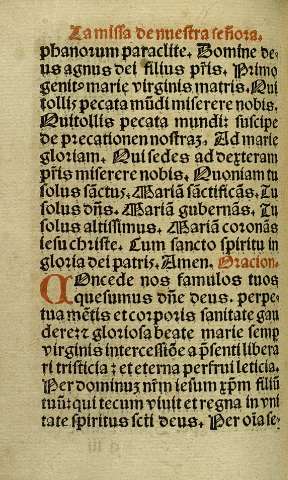 La missa de nuestra señora.
phanorum paraclite. Domine de⸗
us agnus dei filius pr̃is. Primo
genitꝰ marie virginis matris. Qui
tollis pecata mũdi miserere nobis.
Quitollis pecata mundi: suscipe
de precationen nostraz. Ad marie
gloriam. Qui sedes ad dexteram
pr̃is miserere nobis. Quoniam tu
solus sãctus. Mariã sãctificãs. Tu
solus dñs. Mariã gubernãs. Tu
solus altissimus. Mariã coronãs
iesu christe. Cum sancto spiritu in
gloria dei patris. Amen. Oracion.
COncede nos famulos tuos
quesumus dñe deus. perpe⸗
tua mẽtis et corporis sanitate gau
dere: ⁊ gloriosa beate marie semp
virginis intercessiõe a p̃senti libera
ri tristicia: et eterna perfrui leticia.
Per dominuz nr̃m iesum xp̃m filiũ
tuũ: qui tecum viuit et regna in vni
tate spiritus sc̃ti deus. Per oĩa se⸗